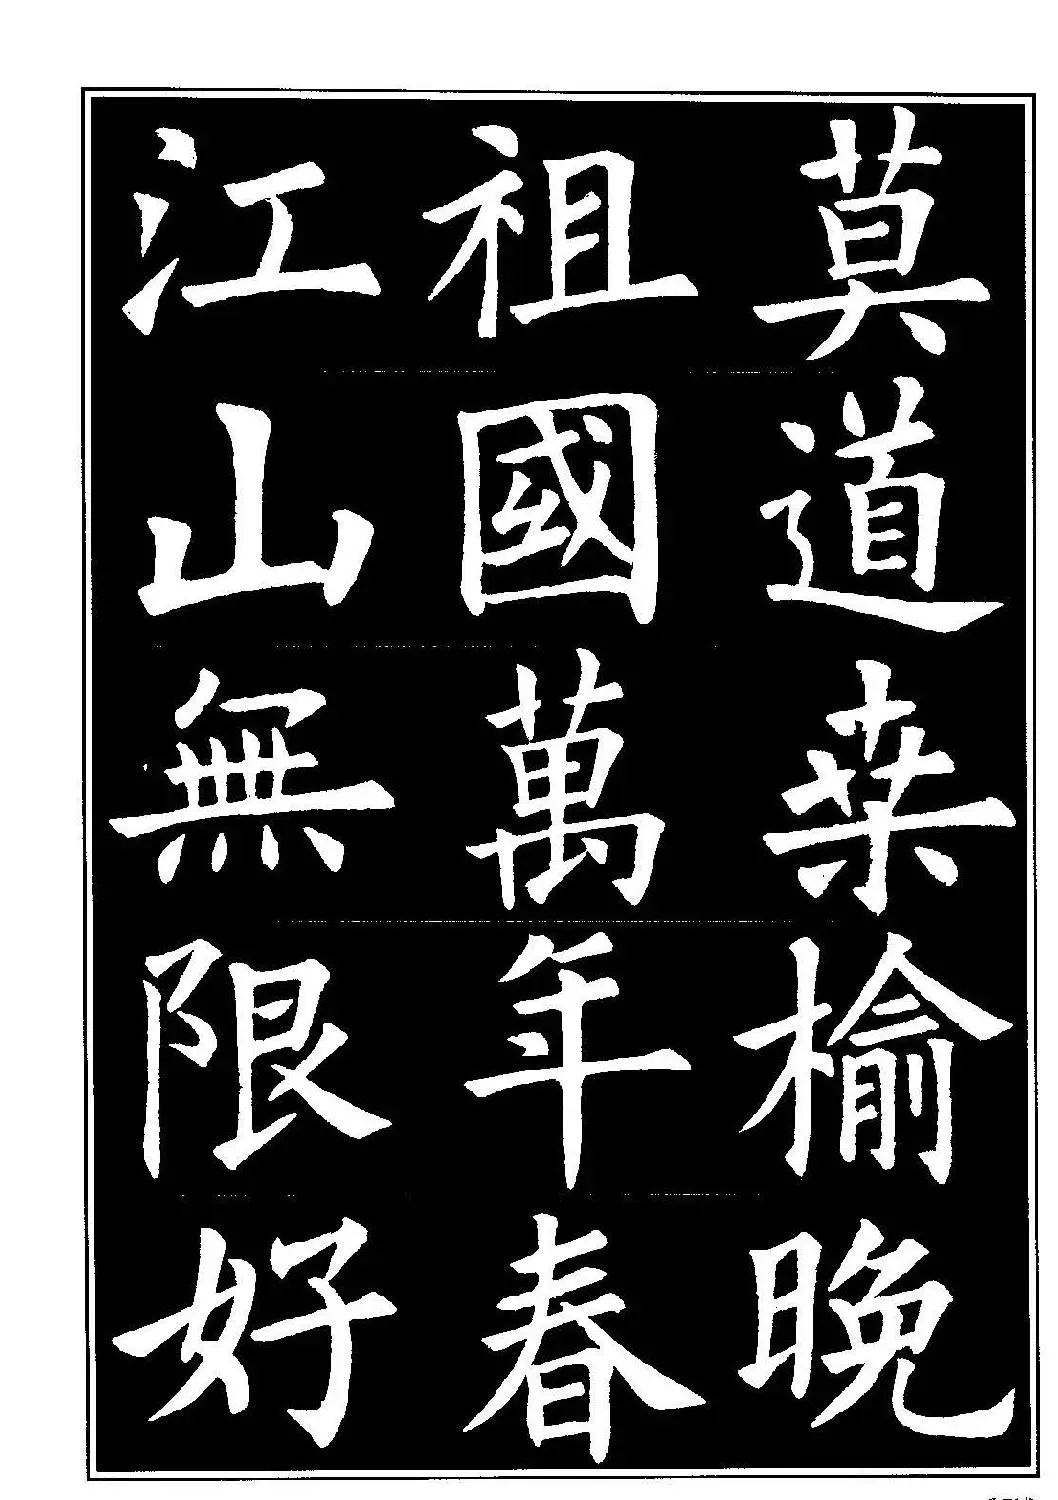 莫道桑榆晚
祖國萬年春
江山無限好